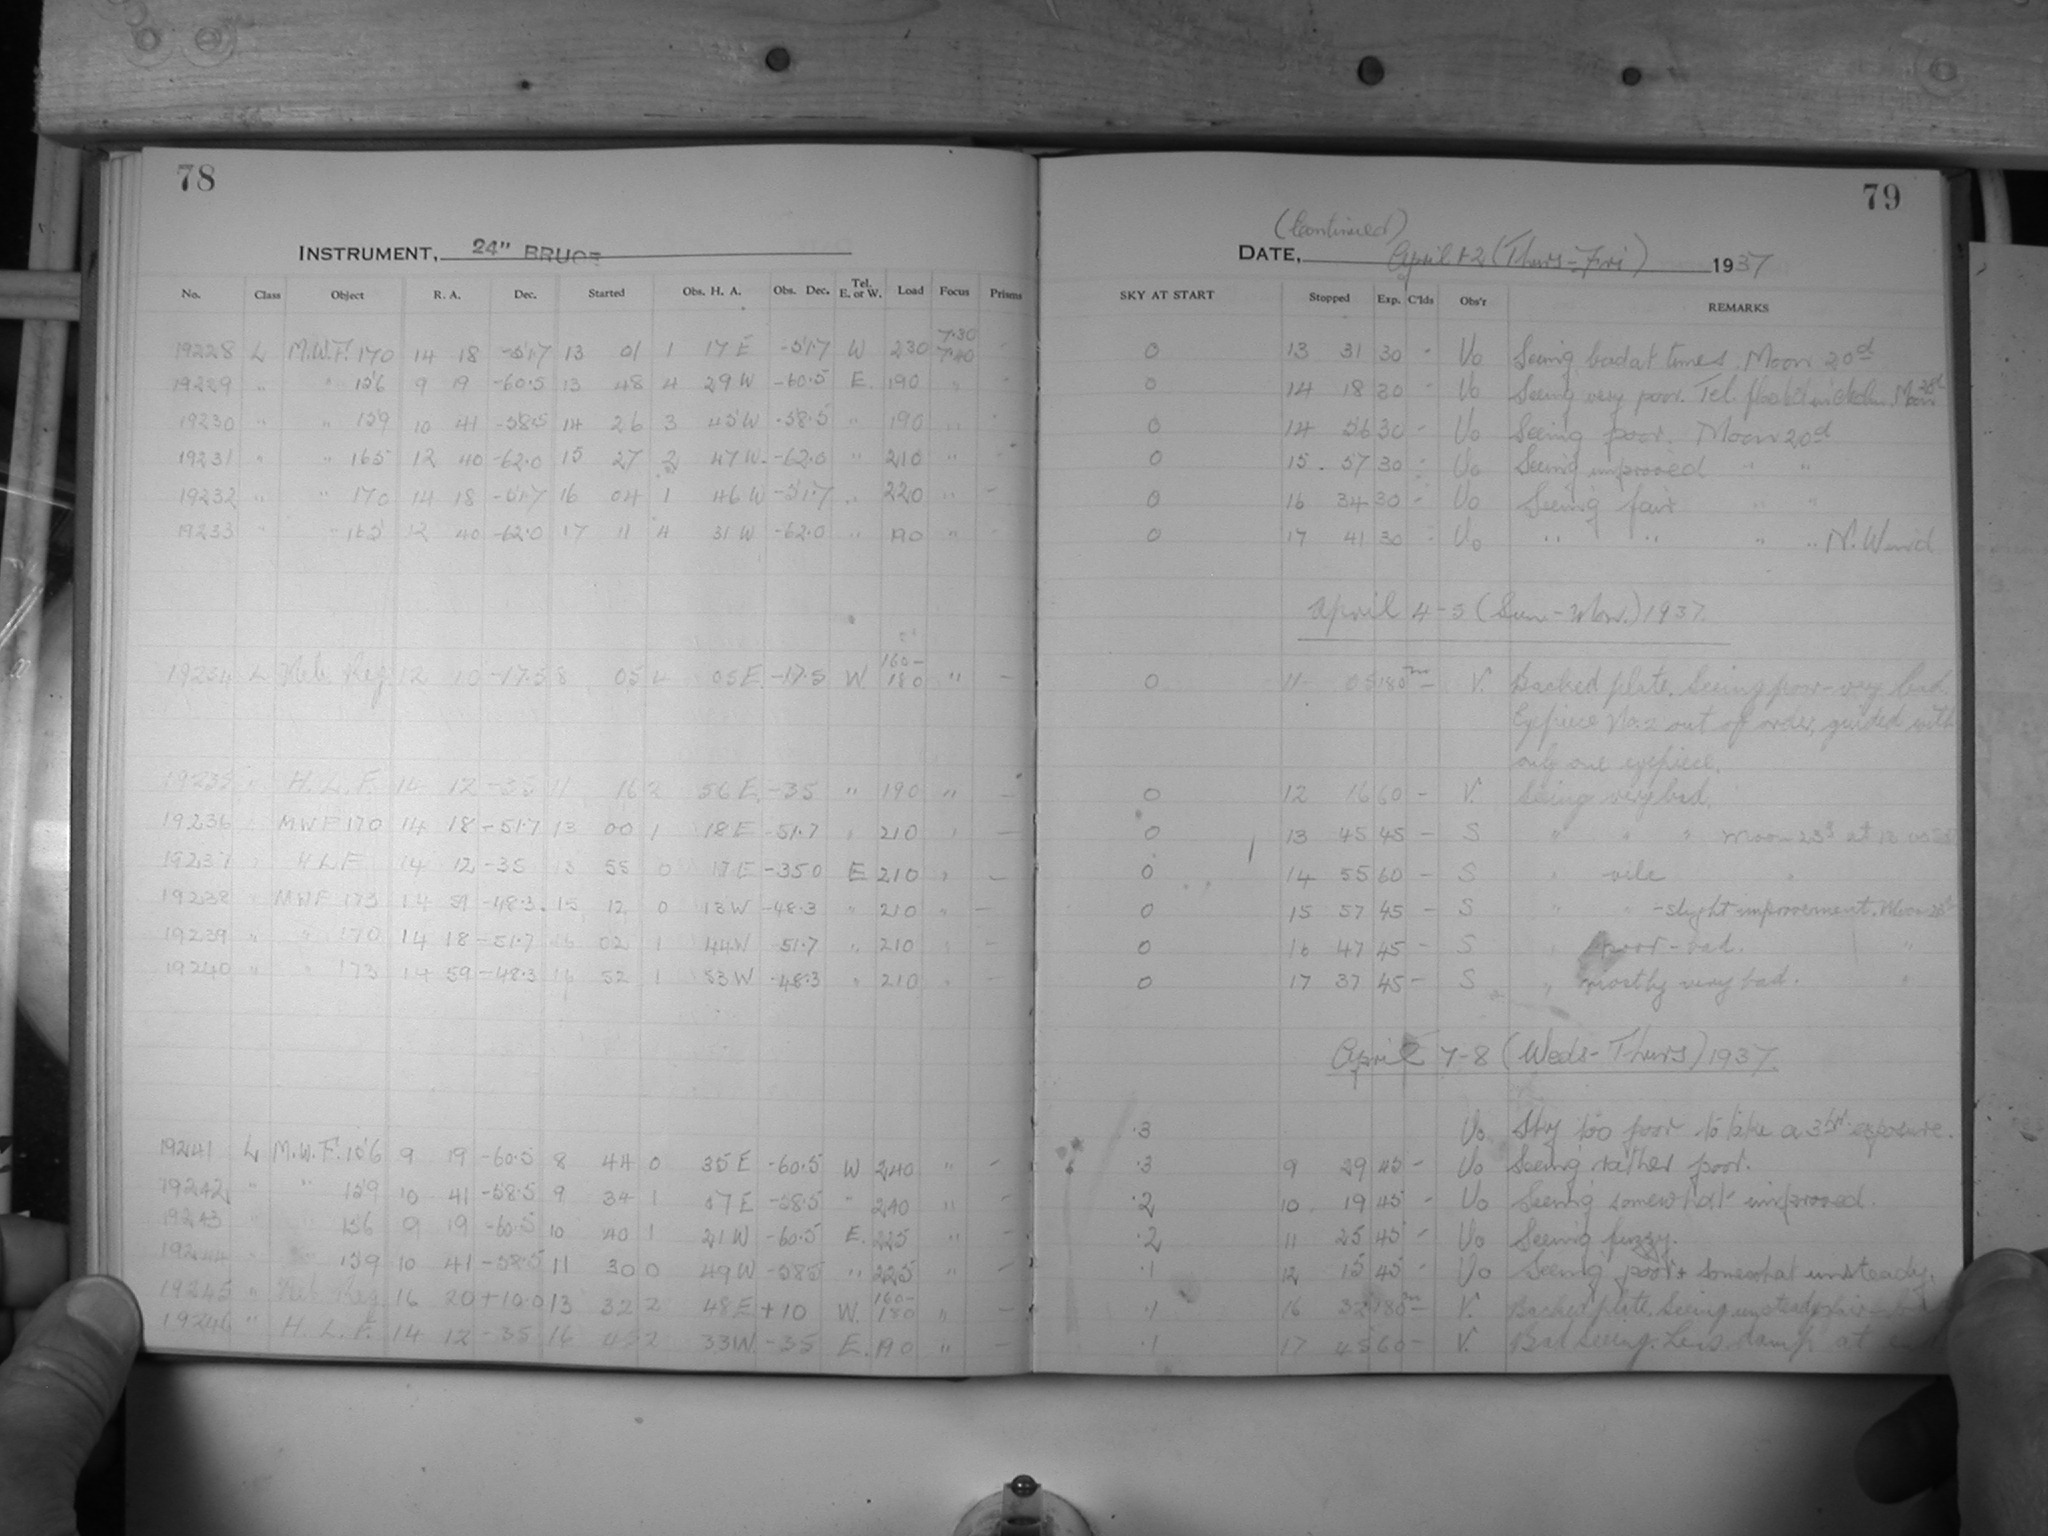 78
INSTRUMENT, 24" BRUCE
No. Class Object R. A. Dec. Started Obs. H. A. Obs. Dec. Tel. E. or W. Load Focus Prisms
7.30
19228 L M.W.F. 170 14 18 -51.7 13 01 1 17 E -51.7 W 230 7.40 -
19229 " " 156 9 19 -60.5 13 48 4 29 W -60.5 E. 190 "
19230 " " 159 10 41 -58.5 14 26 3 45 W -58.5 " 190 " -
19231 " " 165 12 40 -62.0 15 27 2 47 W. -62.0 " 210 " -
19232 " " 170 14 18 -51.7 16 04 1 46 W -51.7 " 220 " -
19233 " " 165 12 40 -62.0 17 11 4 31 W -62.0 " 190 " -
160-
19234 L Neb. Reg. 12 10 -17.5 8 05 4 05 E. -17.5 W. 180 " -
19235 " H. L. F. 14 12 -35 11 16 2 56 E. -35 " 190 " -
19236 " MWF 170 14 18 -51.7 13 00 1 18 E -51.7 " 210 " -
19237 " HLF 14 12 -35 13 55 0 17 E -35 0 E 210 " -
19238 " MWF 173 14 59 -48.3 15 12 0 13 W -48.3 " 210 " -
19239 " " 170 14 18 -51.7 16 02 1 44 W 51.7 " 210 " -
19240 " " 173 14 59 -48.3 16 52 1 53 W -48.3 " 210 " -
19241 L M.W.F. 156 9 19 -60.5 8 44 0 35 E -60.5 W 240 " -
19242 " " 159 10 41 -58.5 9 34 1 07 E -58.5 " 240 " -
19243 " " 156 9 19 -60.5 10 40 1 21 W -60.5 E. 225 " -
19244 " " 159 10 41 -58.5 11 30 0 49 W -58.5 " 225 " -
19245 " Neb. Reg. 16 20 +10.0 13 32 2 48 E +10 W. 160-180 " -
19246 " H. L. F. 14 12 -35 16 45 2 33 W -35 E. 190 " -
79
(Continued)
DATE, April 1-2 (Thurs-Fri) 1937
SKY AT START Stopped Exp. C'lds Obs'r REMARKS
0 13 31 30 - Uo Seeing bad at times. Moon 20d
0 14 18 30 - Uo Seeing very poor. Tel. Moon 20d
0 14 56 30 - Uo Seeing poor. Moon 20d
0 15. 57 30 - Uo Seeing improved " "
0 16 34 30 - Uo Seeing fair " "
0 17 41 30 - Uo " " " " N. Wind
April 4-5 (Sun-Mon.) 1937.
0 11 05 180m - V. Backed plate. Seeing poor - very bad.
Eyepiece No. 2 out of order, guided with
only one eyepiece.
0 12 16 60 - V. Seeing very bad.
0 13 45 45 - S " " " Moon 23d at 13
0 14 55 60 - S " vile "
0 15 57 45 - S " " - slight improvement. Moon 23d
0 16 47 45 - S " poor - bad. "
0 17 37 45 - S " mostly very bad. "
April 7-8 (Weds-Thurs) 1937.
.3 Uo Sky too poor to take a 3hr exposure.
.3 9 29 45 - Uo Seeing rather poor.
.2 10 19 45 - Uo Seeing somewhat improved.
.2 11 25 45 - Uo Seeing fuzzy.
.1 12 15 45 - Uo Seeing poor & somewhat unsteady.
.1 16 32 180m - V. Backed plate. Seeing unsteady, fair -
.1 17 45 60 - V. Bad seeing. Less damp at end